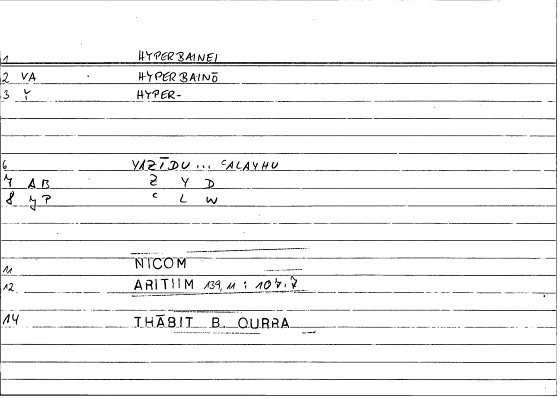 1 HYPERBAINEI
2 VA HYPERBAINŌ
3 Y HYPER-
6 YAZĪDU ... ʿALAYHU
7 AB Z Y D
8 yP ʿ L W
11 NICOM
12 ARITIIM 139,11 : 107.7
14 THĀBIT B. QURRA